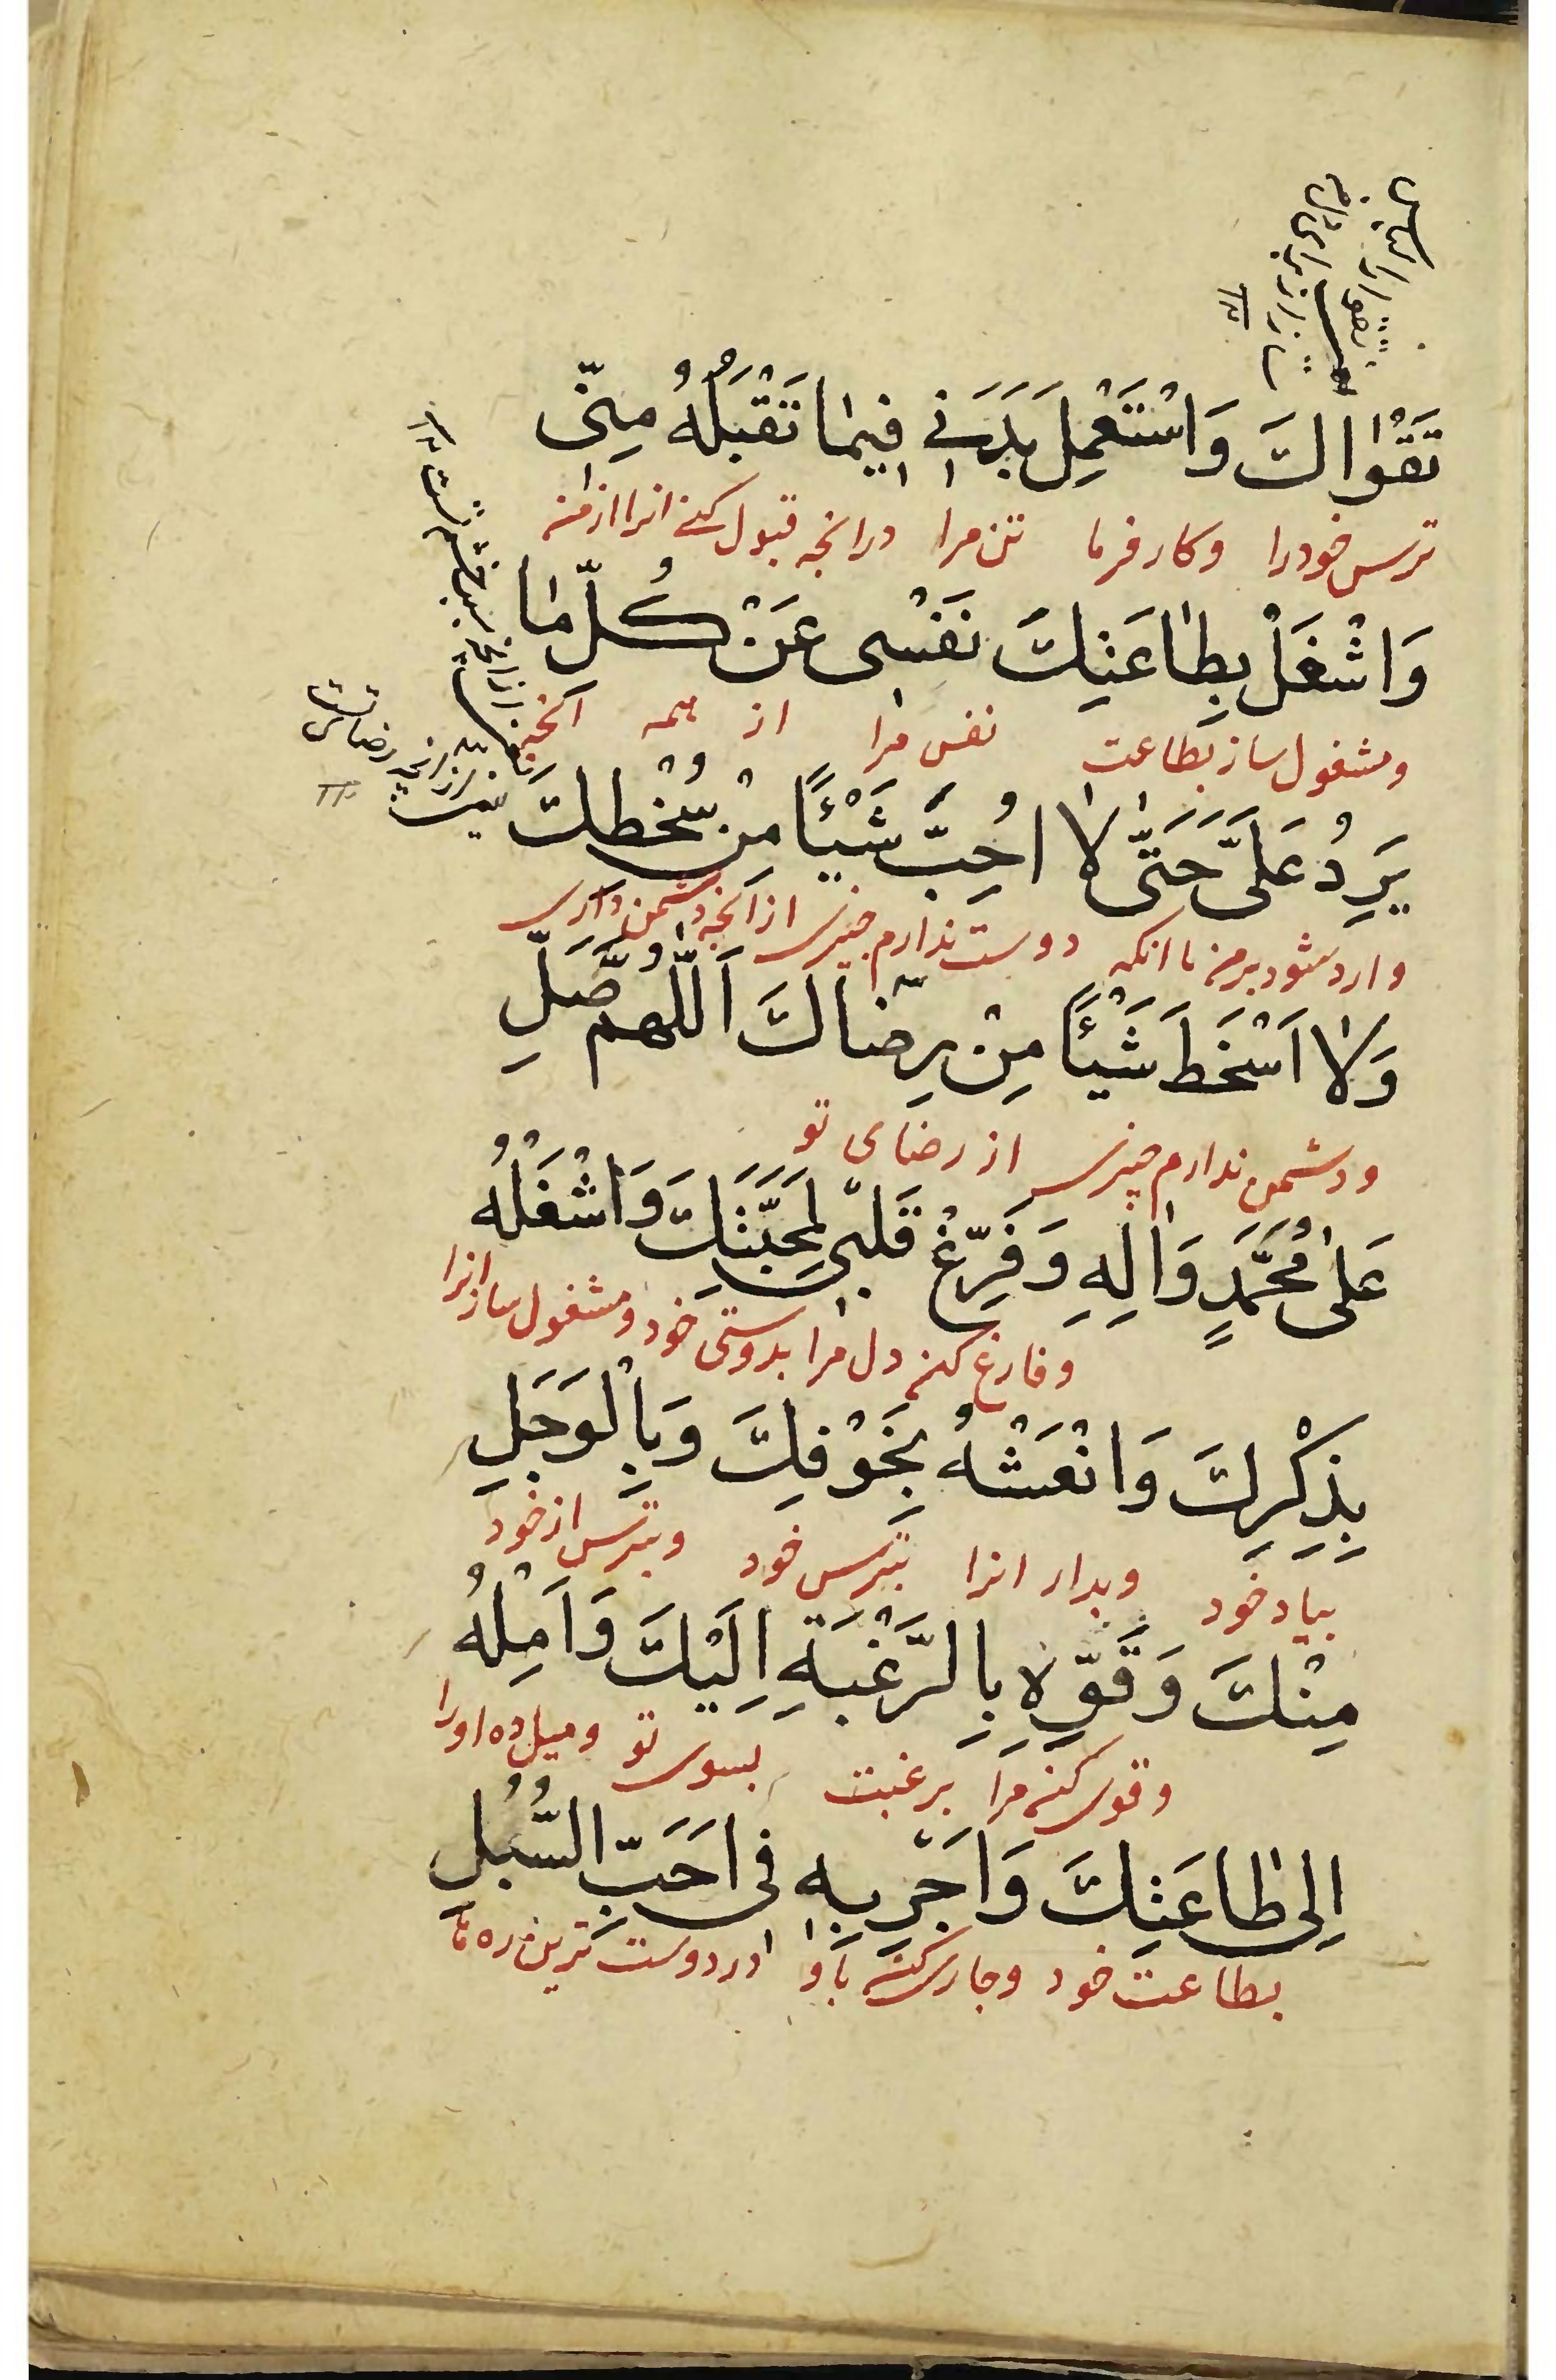 تَقْوَاكَ وَاسْتَعْمِلْ بَدَنِي فِيمَا تَقْبَلُهُ مِنِّي
ترس خود را وكار فرما تن مرا در انچه قبول كنے انرا از من
وَاشْغَلْ بِطَاعَتِكَ نَفْسِي عَنْ كُلِّ مَا
ومشغول ساز بطاعت نفس مرا از همه آنچه
يَرِدُ عَلَيَّ حَتَّى لَا اُحِبَّ شَيْئًا مِنْ سُخْطِكَ
وارد شود بر من تا انكه دوست ندارم چيزى از انچه دشمن دارى
وَلَا اَسْخَطَ شَيْئًا مِنْ رِضَاكَ اَللّٰهُمَّ صَلِّ
ودشمن ندارم چيزى از رضاى تو
عَلَى مُحَمَّدٍ وَاٰلِهِ وَفَرِّغْ قَلْبِي لِمَحَبَّتِكَ وَاشْغَلْهُ
وفارغ كن دل مرا بدوستى خود ومشغول ساز انرا
بِذِكْرِكَ وَانْعَشْهُ بِخَوْفِكَ وَبِالْوَجَلِ
بياد خود وبدار انرا بترس خود وبترس از خود
مِنْكَ وَقَوِّهِ بِالرَّغْبَةِ اِلَيْكَ وَاَمِلْهُ
وقوى كن مرا برغبت بسوى تو وميل ده اورا
اِلَى طَاعَتِكَ وَاَجْرِ بِهِ فِي اَحَبِّ السُّبُلِ
بطاعت خود وجارى كن باو در دوست ترين ره